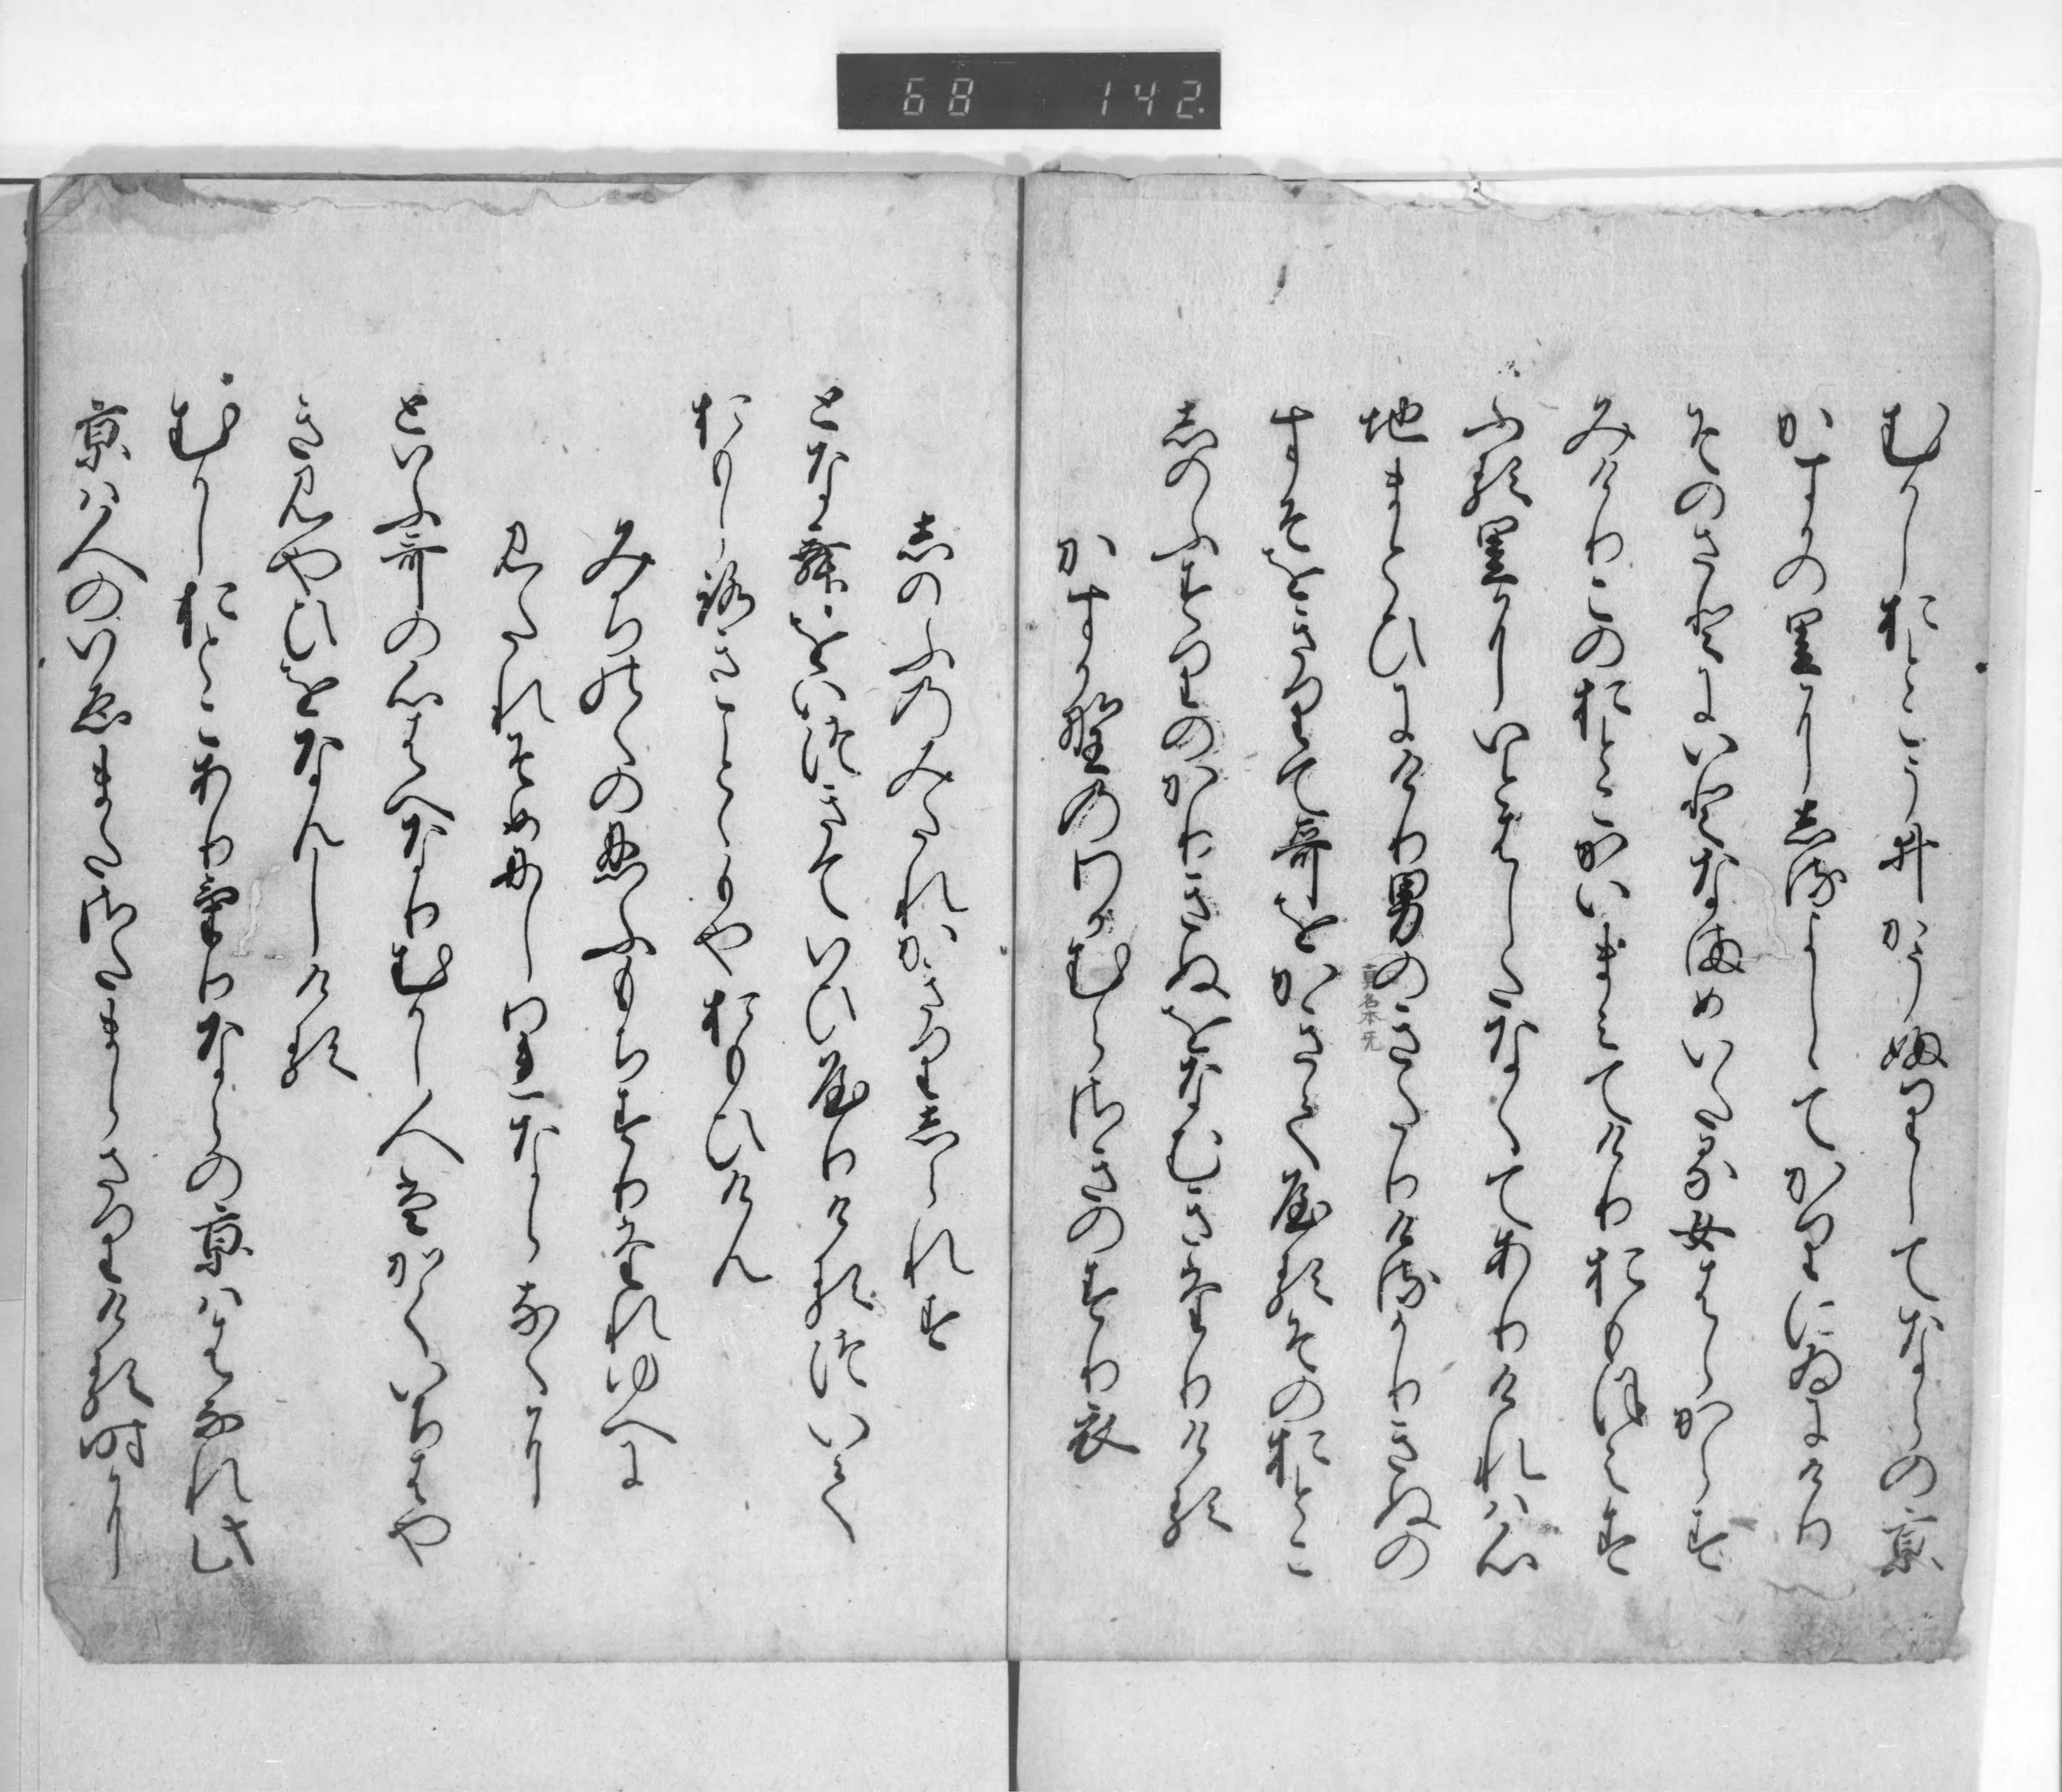 68 142
むかしおとこうゐかうふりしてならの京
かすかの里にしるよしゝてかりにゐにけり
そのさとにいとなまめいたる女はらからす
みけりこのおとこかいまみてけりおもほえす
ふる里にいとはしたなくてありけれハ心
地まとひにけり男のきたりけるかりきぬの
すそをきりて哥をかきてやるそのおとこ
しのふすりのかりきぬをなむきたりける
かすか野のわかむらさきのすり衣
しのふのみたれかきりしられす
となむをいつきていひやりけるついて
おもしろきことゝもや思ひけん
みちのくの忍ふもちすりたれゆへに
みたれそめにし我ならなくに
といふ哥の心はへなりむかし人はかくいちはや
きみやひをなんしける
むかしおとこありけりならの京ハはなれ此
京ハ人のいゑまたさたまらさりける時に